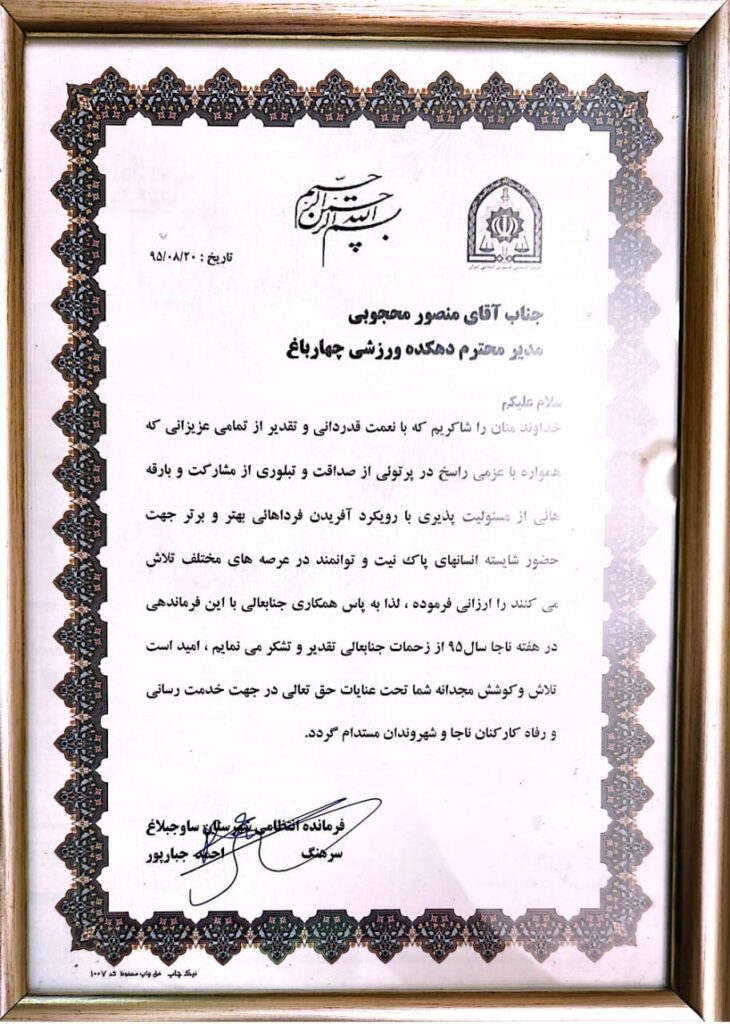 بسم الله الرحمن الرحیم
تاریخ : ۹۵/۰۸/۲۰
جناب آقای منصور محجوبی
مدیر محترم دهکده ورزشی چهارباغ
سلام علیکم
خداوند منان را شاکریم که با نعمت قدردانی و تقدیر از تمامی عزیزانی که
همواره با عزمی راسخ در پرتوئی از صداقت و تبلوری از مشارکت و بارقه
هائی از مسئولیت پذیری با رویکرد آفریدن فرداهائی بهتر و برتر جهت
حضور شایسته انسانهای پاک نیت و توانمند در عرصه های مختلف تلاش
می کنند را ارزانی فرموده ، لذا به پاس همکاری جنابعالی با این فرماندهی
در هفته ناجا سال۹۵ از زحمات جنابعالی تقدیر و تشکر می نمایم ، امید است
تلاش و کوشش مجدانه شما تحت عنایات حق تعالی در جهت خدمت رسانی
و رفاه کارکنان ناجا و شهروندان مستدام گردد.
فرمانده انتظامی شهرستان ساوجبلاغ
سرهنگ احمد جبارپور
نیک چاپ حق چاپ محفوظ کد ۱۰۰۷